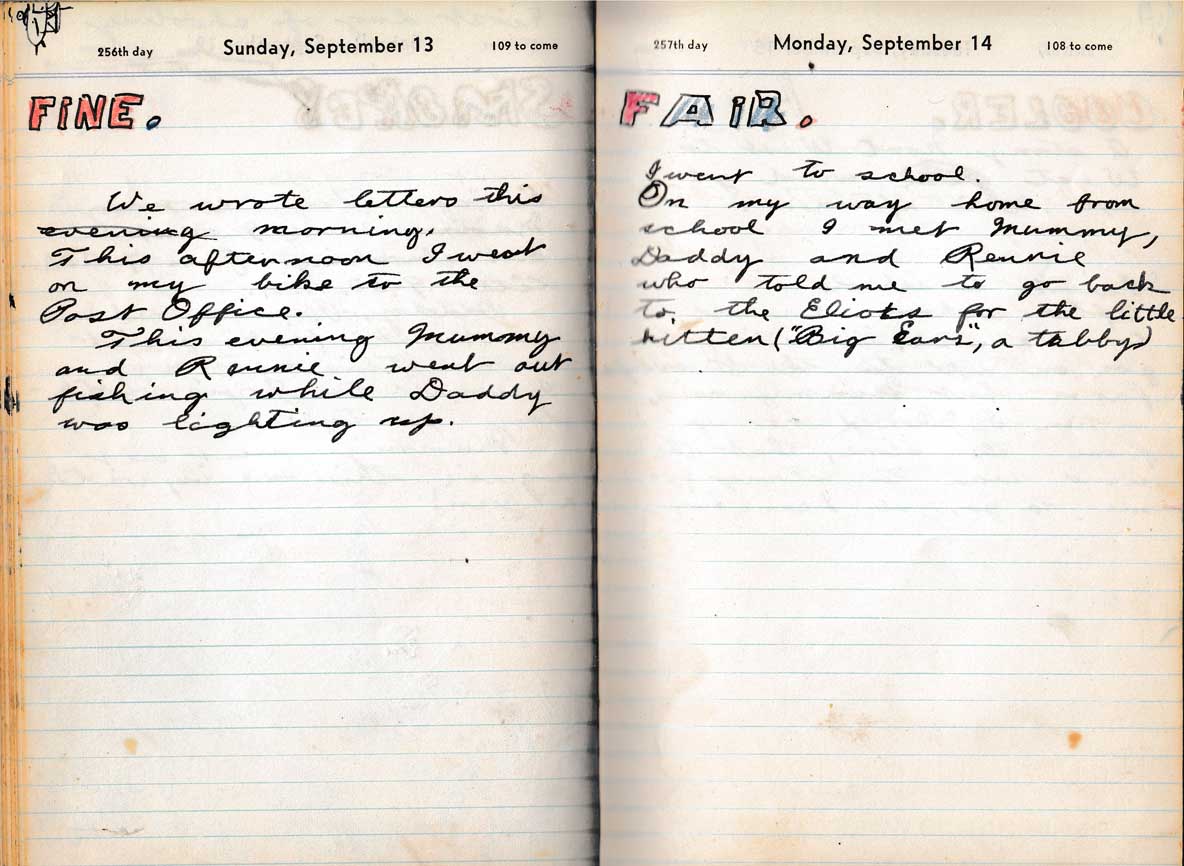 256th day Sunday, September 13 109 to come
FINE.
We wrote letters this
evening morning.
This afternoon I went
on my bike to the
Post Office.
This evening Mummy
and Rennie went out
fishing while Daddy
was lighting up.
257th day Monday, September 14 108 to come
FAIR.
I went to school.
On my way home from
school I met Mummy,
Daddy and Rennie
who told me to go back
to the Eliots for the little
kitten ("Big Ears", a tabby)